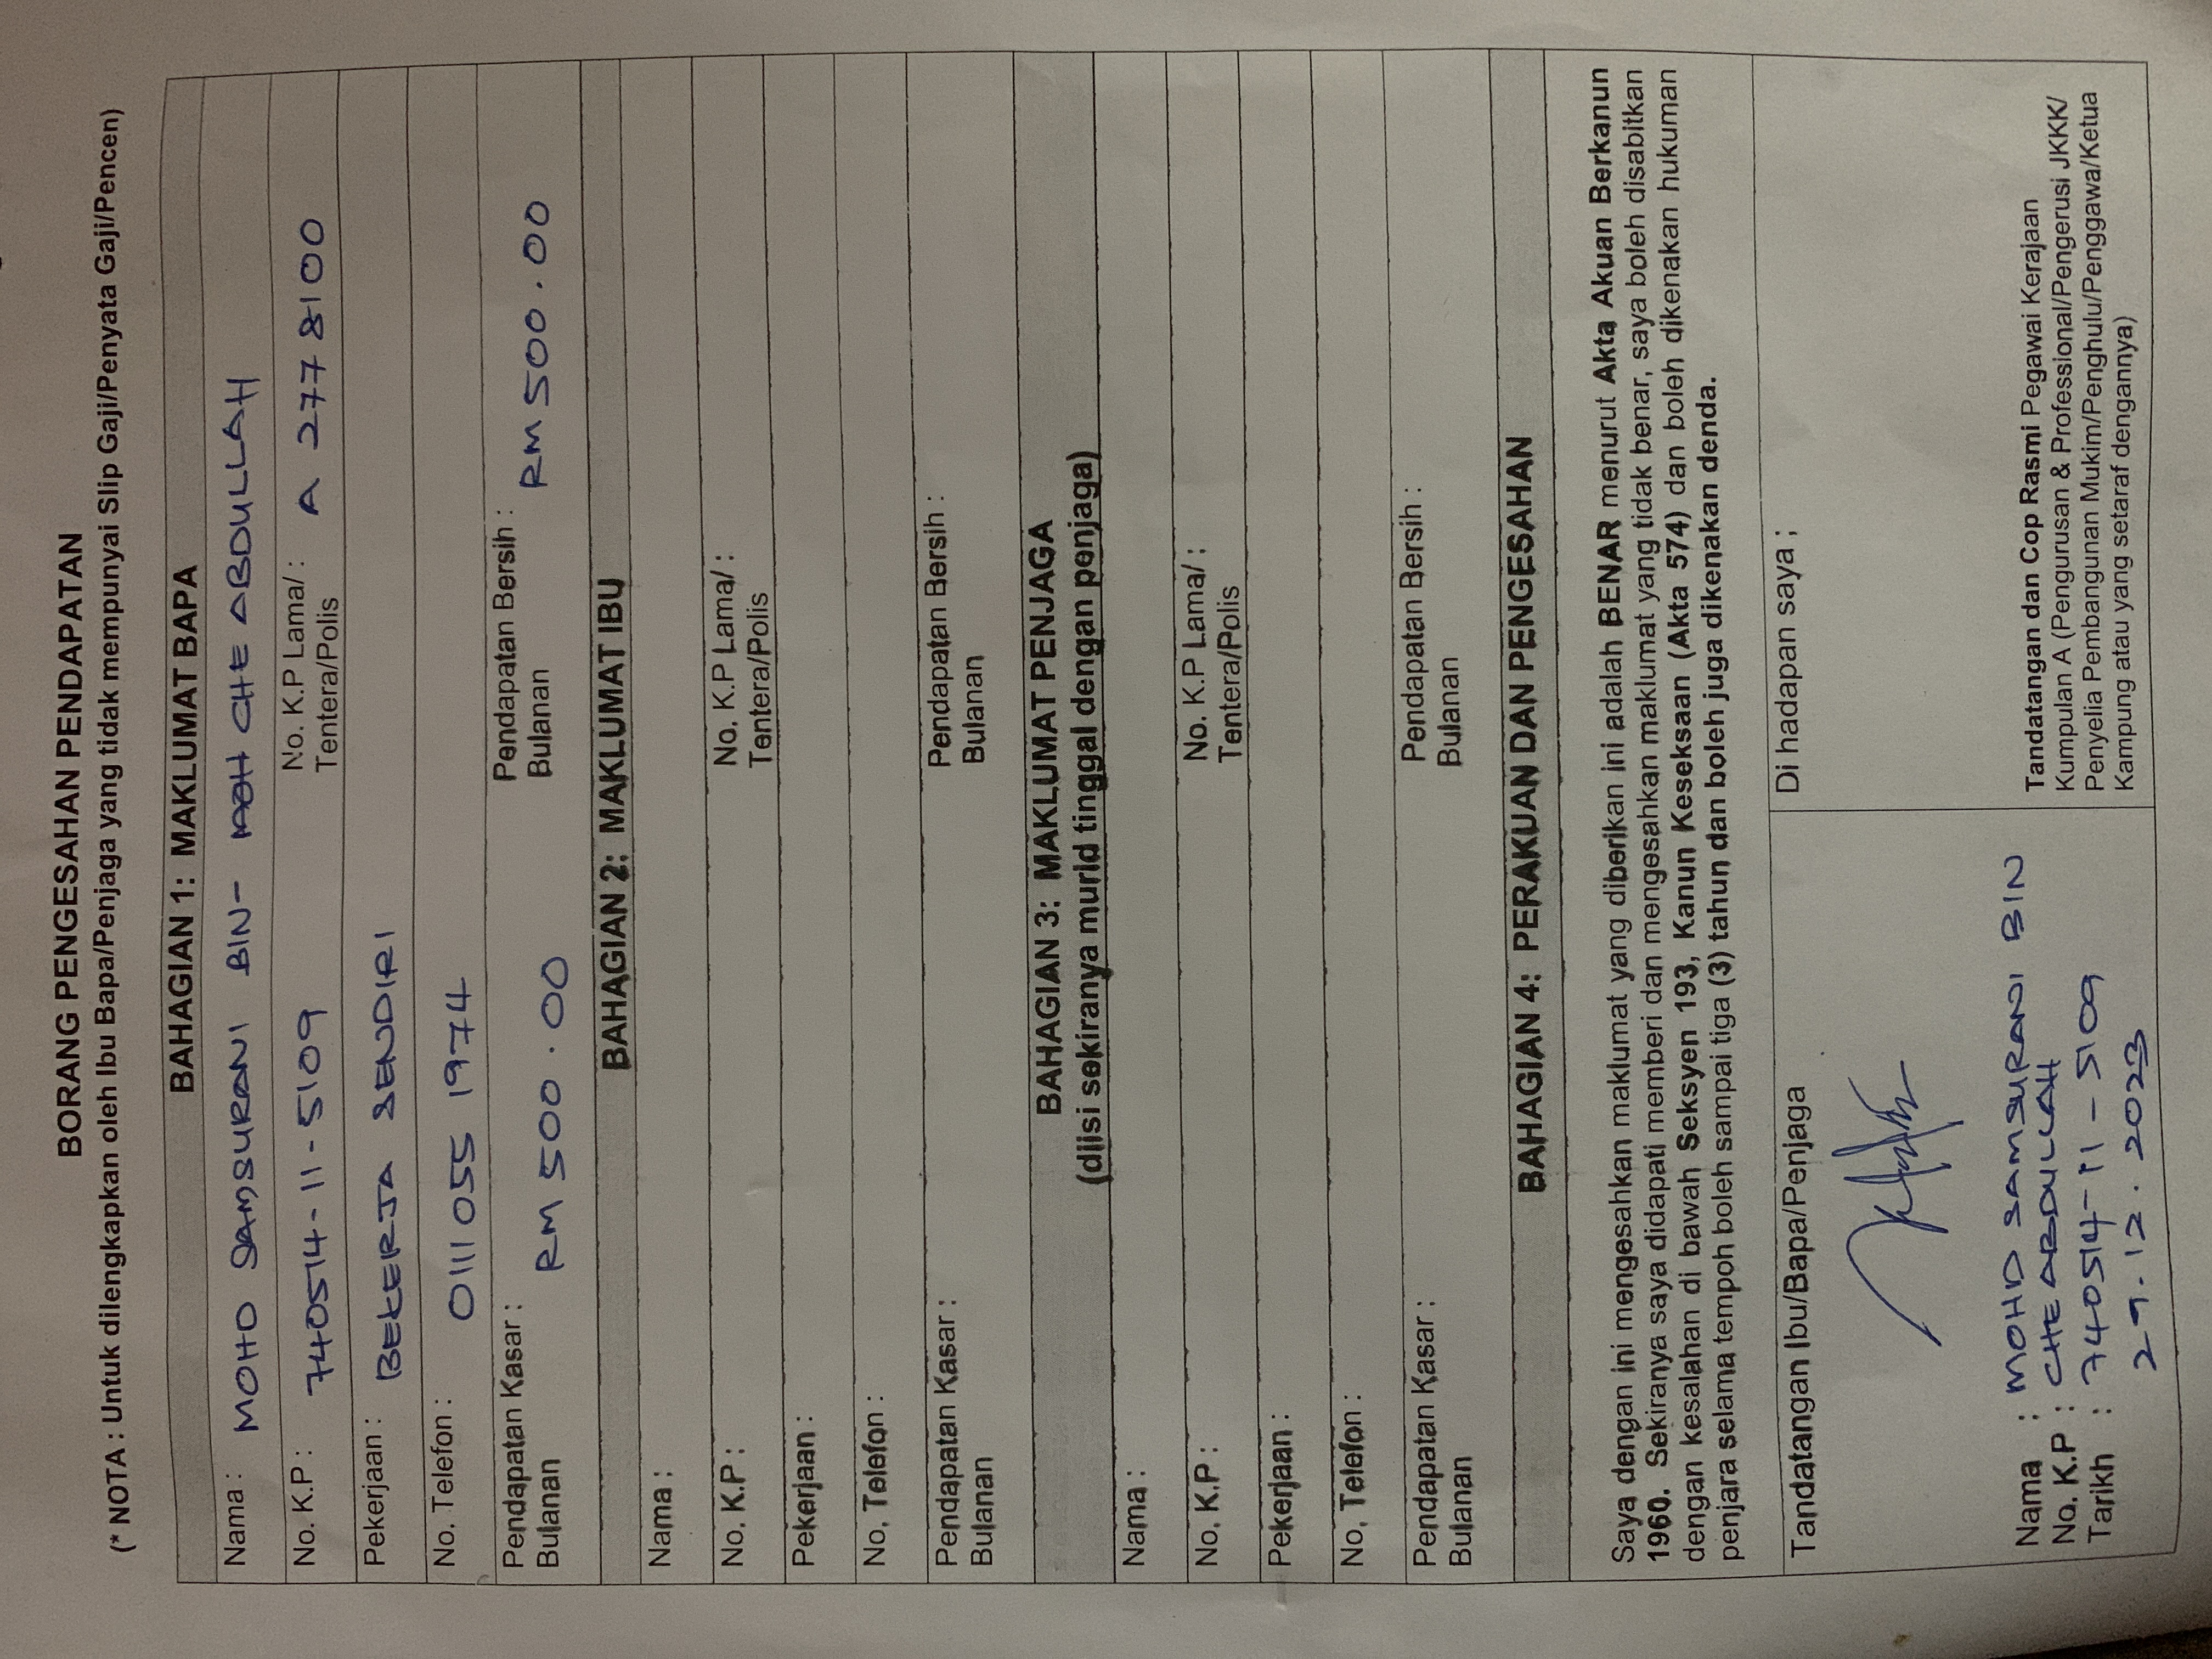 BORANG PENGESAHAN PENDAPATAN
(* NOTA : Untuk dilengkapkan oleh Ibu Bapa/Penjaga yang tidak mempunyai Slip Gaji/Penyata Gaji/Pencen)
BAHAGIAN 1: MAKLUMAT BAPA
Nama : MOHD SAMSURANI BIN- CHE ABDULLAH
No. K.P : 740514-11-5109 No. K.P Lama/ : A 2778100
Tentera/Polis
Pekerjaan : BEKERJA SENDIRI
No. Telefon : 0111 055 1974
Pendapatan Kasar : RM 500.00 Pendapatan Bersih : RM 500.00
Bulanan Bulanan
BAHAGIAN 2: MAKLUMAT IBU
Nama :
No. K.P : No. K.P Lama/ :
Tentera/Polis
Pekerjaan :
No. Telefon :
Pendapatan Kasar : Pendapatan Bersih :
Bulanan Bulanan
BAHAGIAN 3: MAKLUMAT PENJAGA
(diisi sekiranya murid tinggal dengan penjaga)
Nama :
No. K.P : No. K.P Lama/ :
Tentera/Polis
Pekerjaan :
No. Telefon :
Pendapatan Kasar : Pendapatan Bersih :
Bulanan Bulanan
BAHAGIAN 4: PERAKUAN DAN PENGESAHAN
Saya dengan ini mengesahkan maklumat yang diberikan ini adalah BENAR menurut Akta Akuan Berkanun
1960. Sekiranya saya didapati memberi dan mengesahkan maklumat yang tidak benar, saya boleh disabitkan
dengan kesalahan di bawah Seksyen 193, Kanun Keseksaan (Akta 574) dan boleh dikenakan hukuman
penjara selama tempoh boleh sampai tiga (3) tahun dan boleh juga dikenakan denda.
Tandatangan Ibu/Bapa/Penjaga
Nama : MOHD SAMSURANI BIN
CHE ABDULLAH
No. K.P : 740514-11-5109
Tarikh : 29.12.2023
Di hadapan saya ;
Tandatangan dan Cop Rasmi Pegawai Kerajaan
Kumpulan A (Pengurusan & Professional/Pengerusi JKKK/
Penyelia Pembangunan Mukim/Penghulu/Penggawa/Ketua
Kampung atau yang setaraf dengannya)